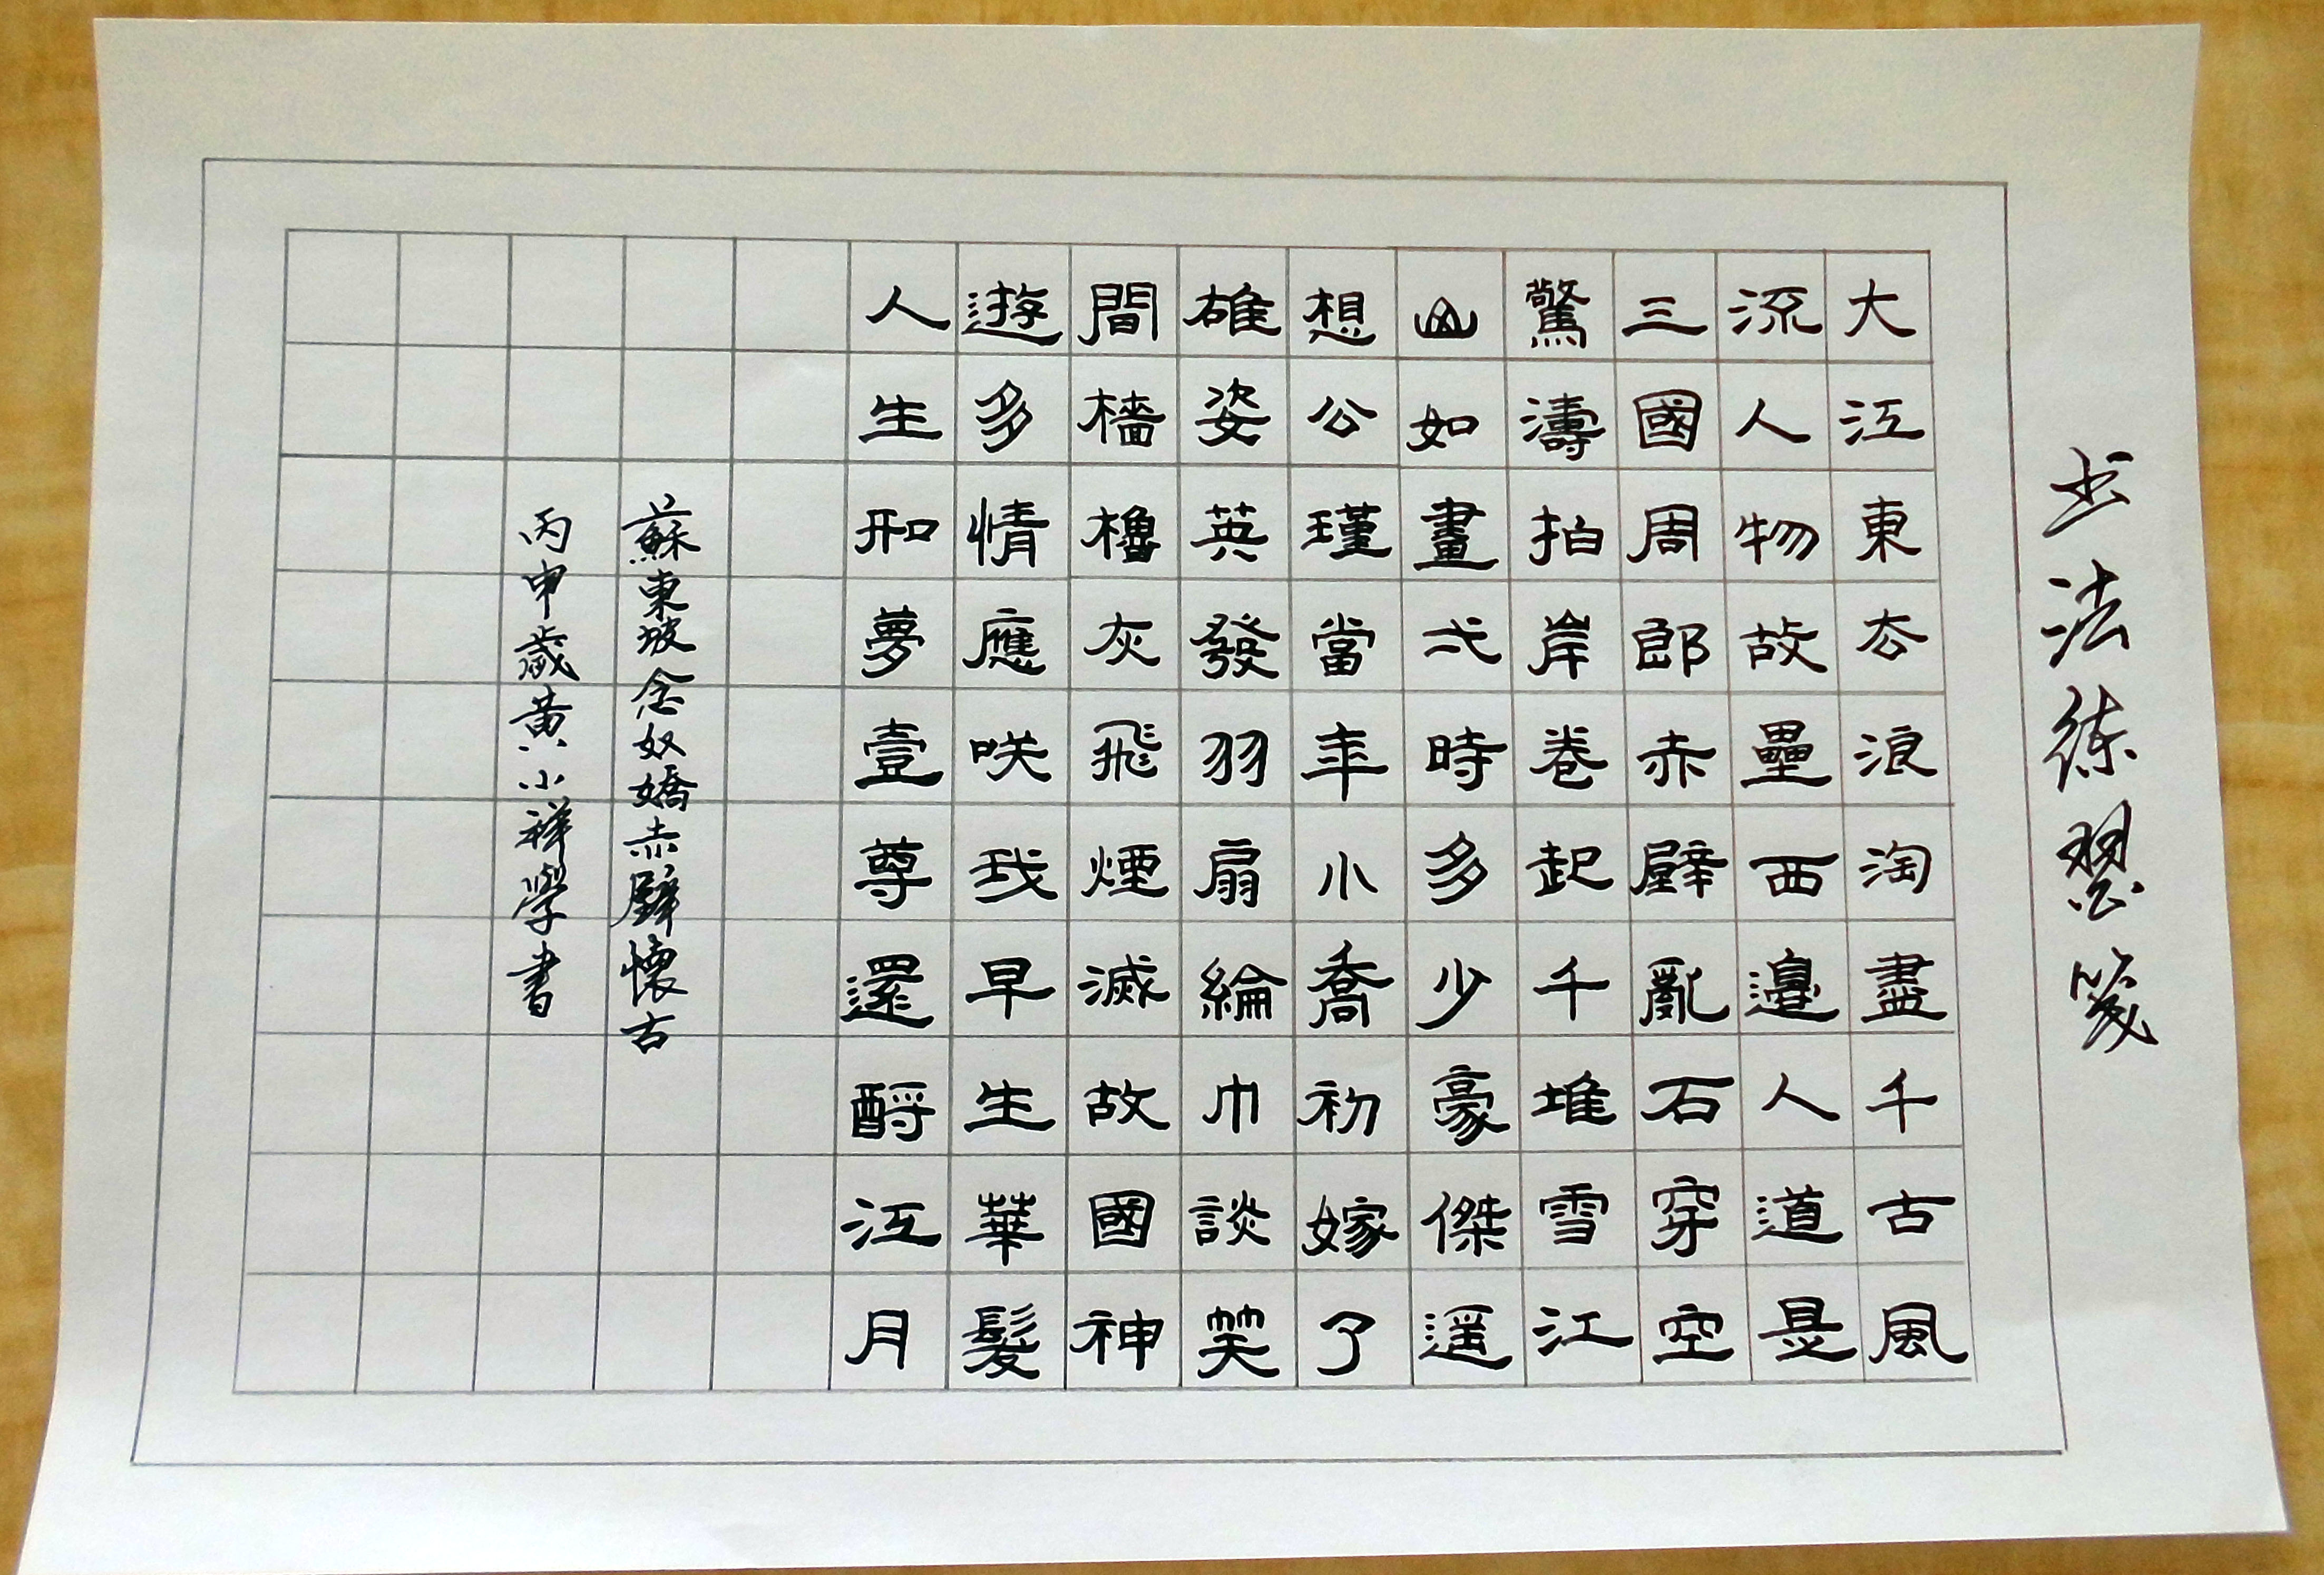 书法练习笺
大江東去浪淘盡千古風
流人物故壘西邊人道是
三國周郎赤壁亂石穿空
驚濤拍岸卷起千堆雪江
山如畫弌時多少豪傑遥
想公瑾當年小喬初嫁了
雄姿英發羽扇綸巾談笑
間檣櫓灰飛煙滅故國神
遊多情應咲我早生華髮
人生如夢壹尊還酹江月
蘇東坡念奴嬌赤壁懷古
丙申歲黃小祥學書